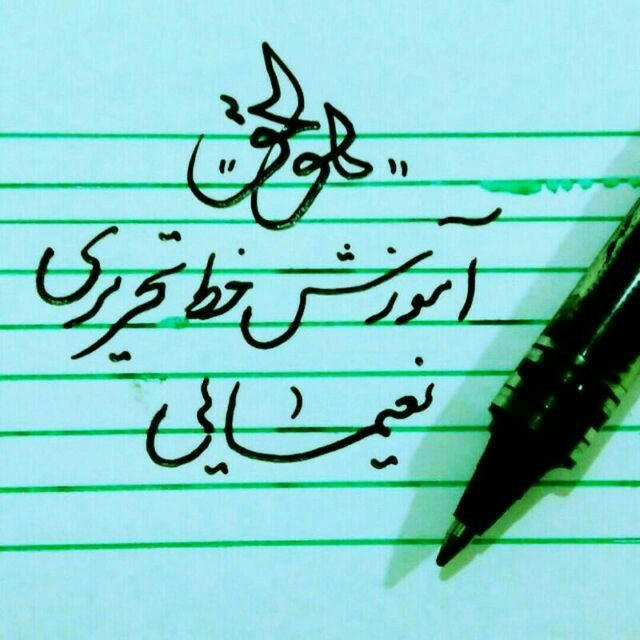 "هوالحق"
آموزش خط تحریری
نعیمائی